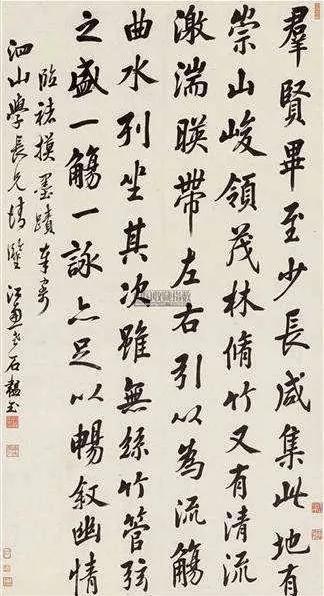 羣賢畢至少長咸集此地有
崇山峻領茂林脩竹又有清流
激湍暎帶左右引以為流觴
曲水列坐其次雖無絲竹管弦
之盛一觴一詠亦足以暢叙幽情
臨褚摸墨蹟奉寄
泗山學長兄清鑒 石韞玉